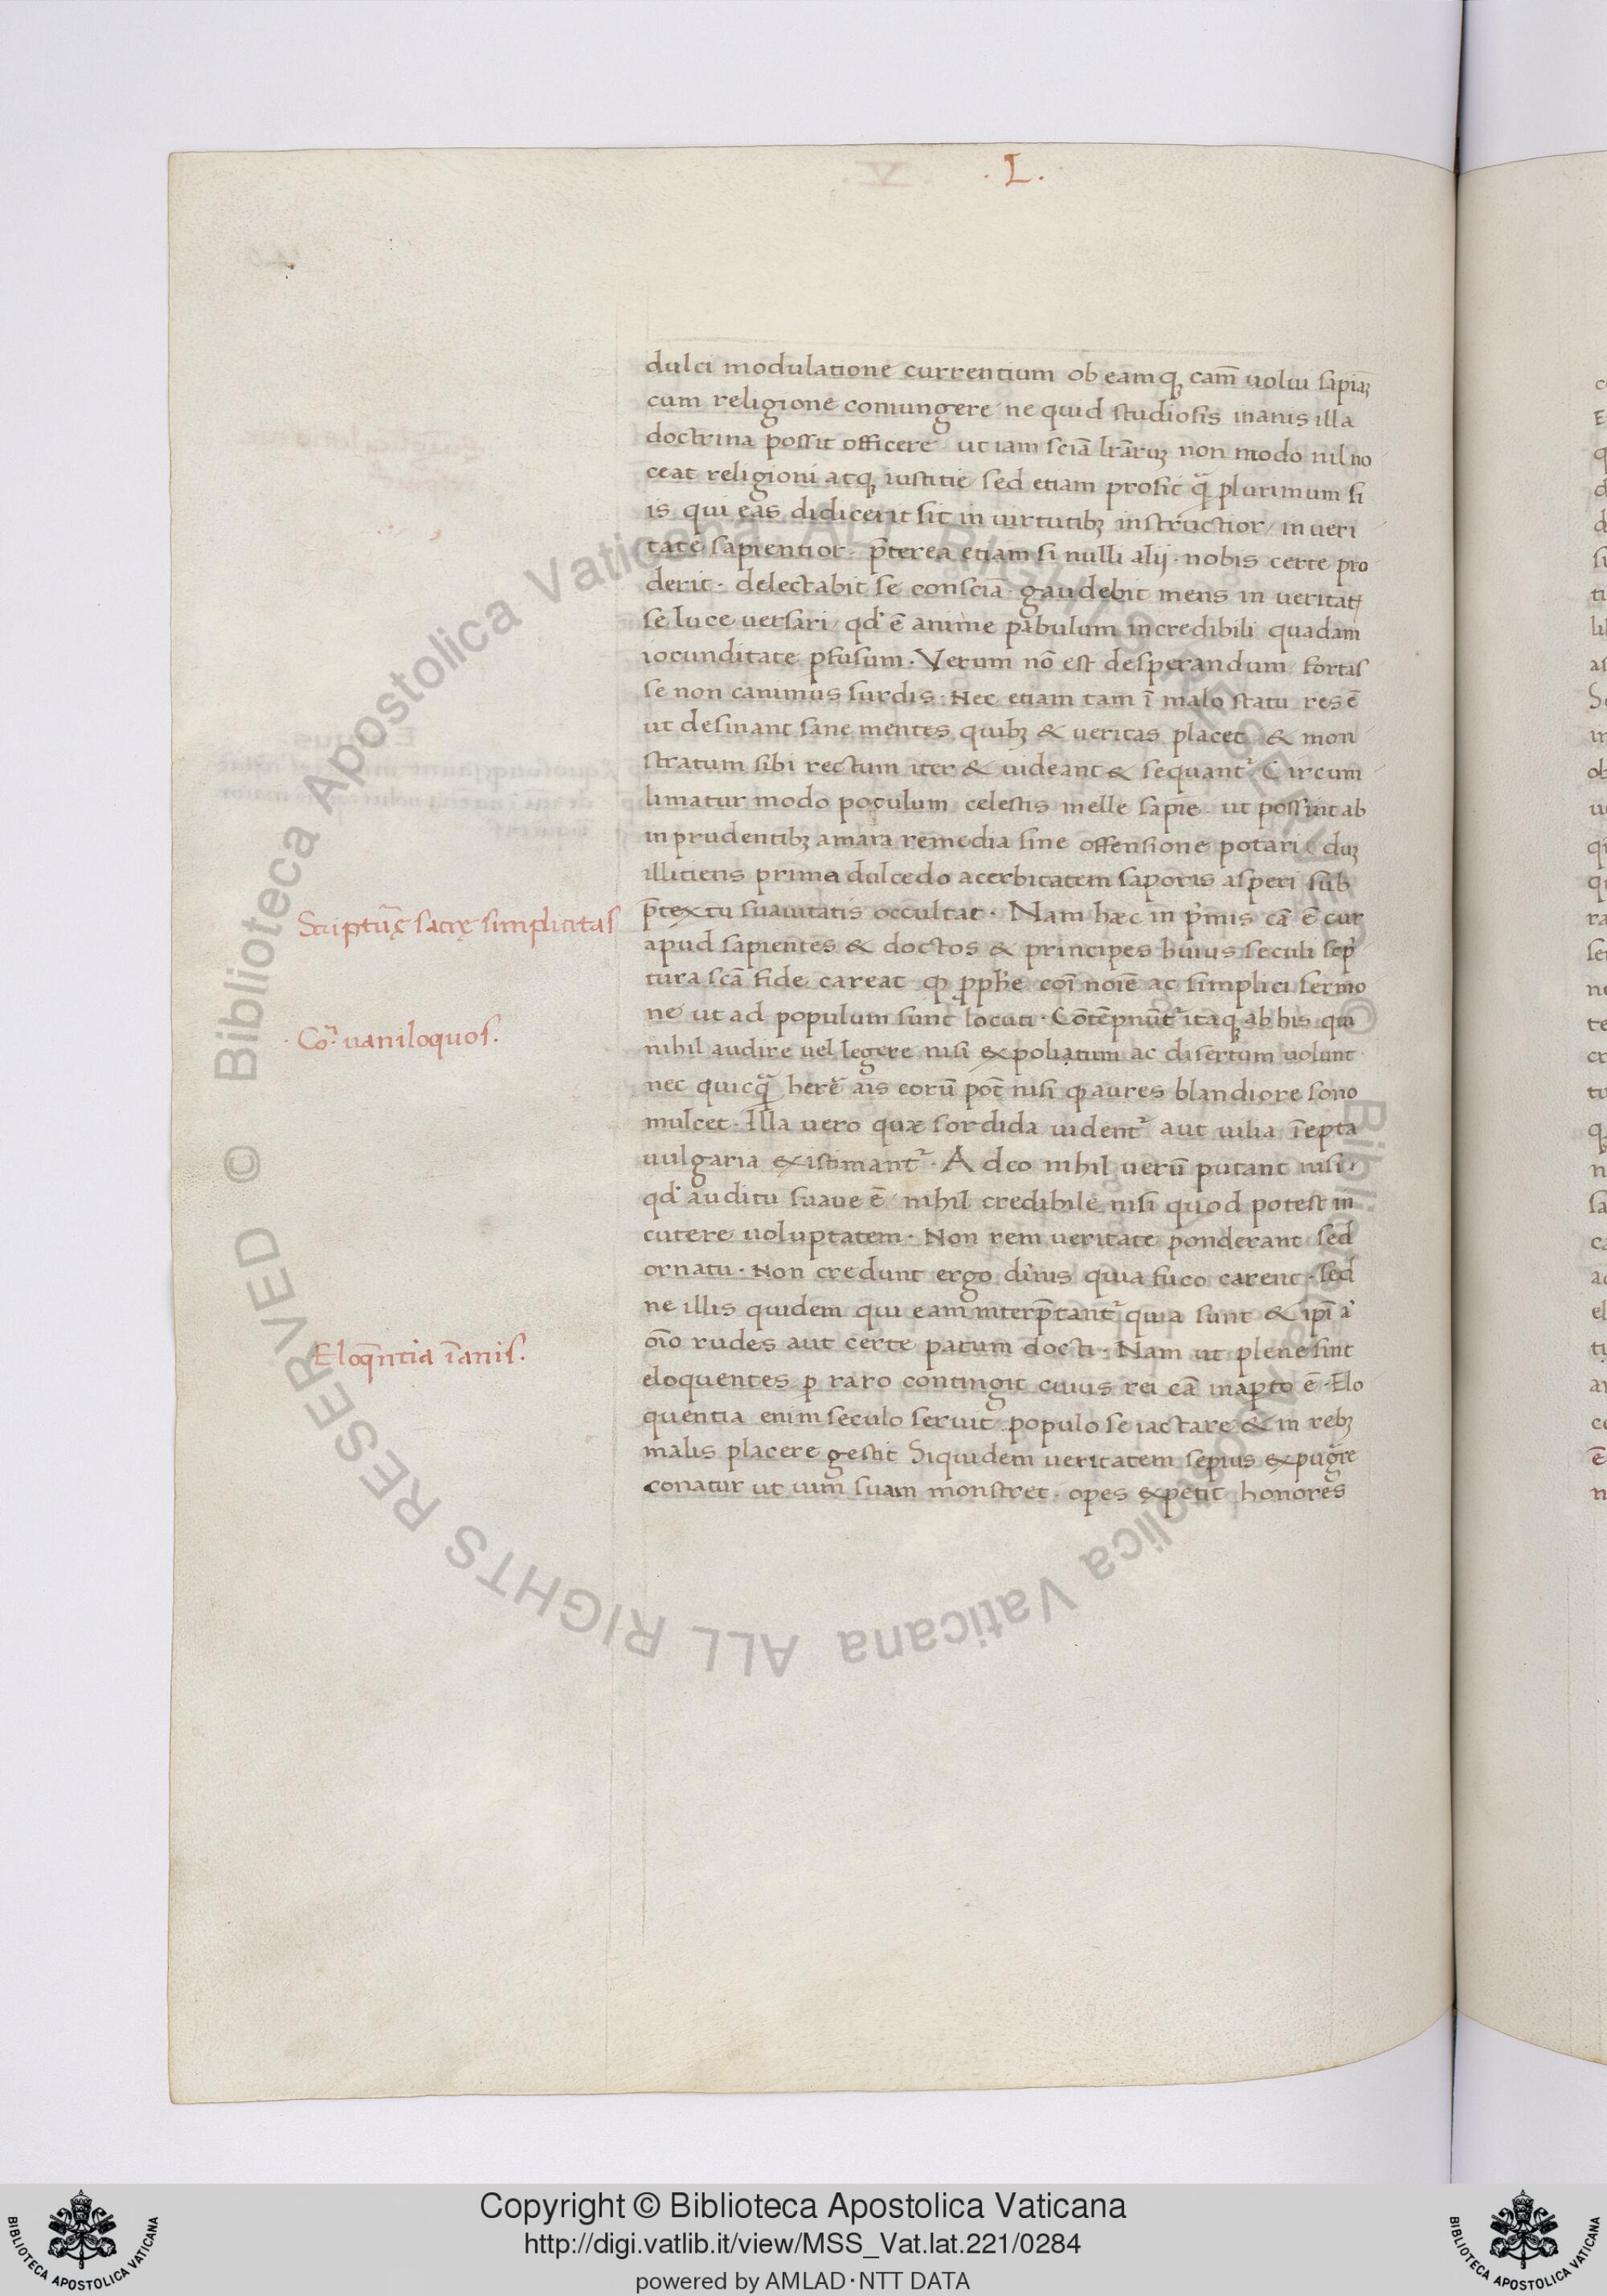 . L .
dulci modulatione currentium ob eamq; cam̄ uolui sapiaꝫ
cum religione coniungere ne quid studiosis inanis illa
doctrina possit officere ut iam sciā lrārꝫ non modo nil no
ceat religioni atq; iustitie / sed etiam prosit q̄ plurimum si
is qui eas didicerit sit in uirtutibꝫ instructior / in ueri
tate sapientior . p̄terea etiam si nulli alij . nobis certe pro
derit . delectabit se consciā . gaudebit mens in ueritat
se luce uersari / qd' ē anime pabulum incredibili quadam
iocunditate ꝑfusum . Verum nō est desperandum fortas
se non canimus surdis . Nec etiam tam ī malo statu res ē
ut desinant sane mentes quibꝫ & ueritas placet & mon
stratum sibi rectum iter & uideant & sequant² Circum
limatur modo poculum celestis melle sapiē . ut possint ab
inprudentibꝫ amara remedia sine offensione potari / duꝫ
illiciens prima dulcedo acerbitatem saporis asperi sub
Scriptur̄ę sacrę simplicitas
p̄textu suauitatis occultat . Nam hæc in p'mis cā ē cur
apud sapientes & doctos & principes huius seculi scp'
tura scā fide careat ꝙ ꝓph'e coī noīe ac simplici sermo
ne ut ad populum sunt locuti . Cōtēpnūt² itaq; ab his qui
Co² uaniloquos .
nihil audire uel legere nisi expoliatum ac disertum uolunt
nec quicq̄ herē aīs eorū pōt nisi ꝙ aures blandiore sono
mulcet . Illa uero quæ sordida uident² aut uilia īepta
uulgaria existimant² . Adeo nihil uerū putant nisi
qd' auditu suaue ē / nihil credibile nisi quod potest in
cutere uoluptatem . Non rem ueritate ponderant sed
ornatu . Non credunt ergo diuīs quia fuco carent . sed
ne illis quidem qui eam interp̄tant² quia sunt & ip̄i a'
Eloq̄ntia īanis .
oīo rudes aut certe parum docti . Nam ut plene sint
eloquentes ꝑ raro contingit cuius rei cā inaꝑto ē . Elo
quentia enim seculo seruit populo se iactare & in rebꝫ
malis placere gestit Siquidem ueritatem sepius expugre
conatur ut uim suam monstret . opes expetit honores
Copyright © Biblioteca Apostolica Vaticana
http://digi.vatlib.it/view/MSS_Vat.lat.221/0284
powered by AMLAD·NTT DATA